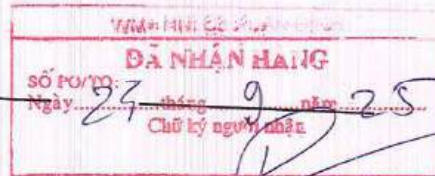 ĐÃ NHẬN HÀNG
SỐ PO/TO:
Ngày 24 tháng 9 năm 25
Chữ ký người nhận